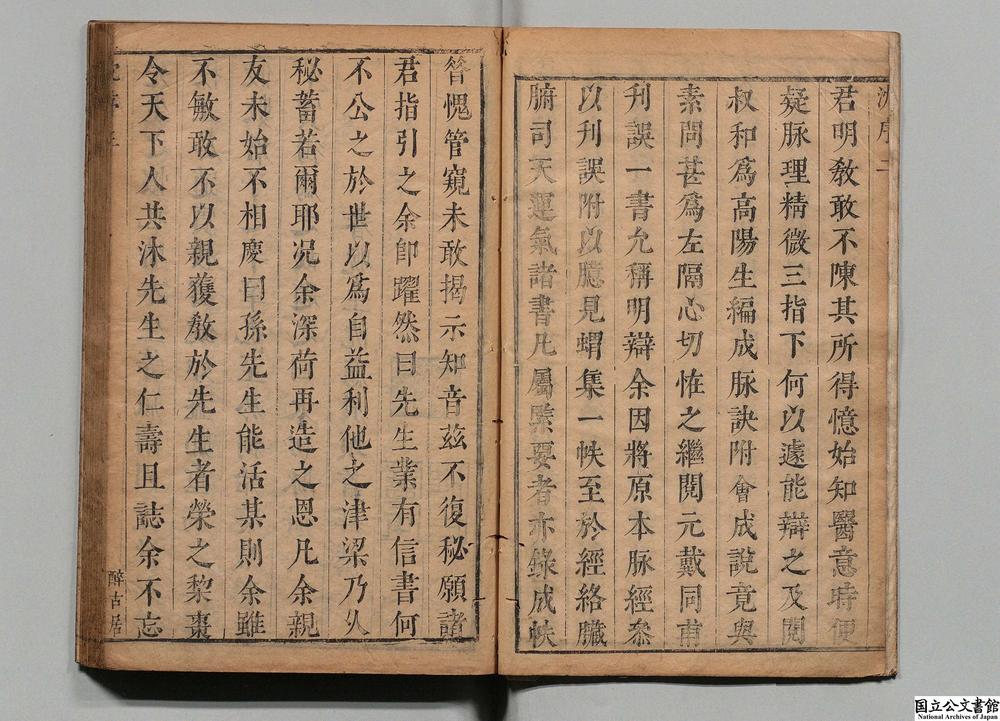 沈序 二
君明敎敢不陳其所得憶始知醫意時便
疑脉理精微三指下何以遽能辯之及閱
叔和爲高陽生編成脉訣附會成說竟與
素問甚爲左隔心切恠之繼閱元戴同甫
刋誤一書允稱明辯余因將原本脉經叅
以刋誤附以臆見蝟集一帙至於經絡臟
腑司天運氣諸書凡屬緊要者亦錄成帙
笥愧管窺未敢揭示知音茲不復秘願諸
君指引之余卽躍然曰先生業有信書何
不公之於世以爲自益利他之津梁乃乆
秘蓄若爾耶况余深荷再造之恩凡余親
友未始不相慶曰孫先生能活某則余雖
不敏敢不以親獲敎於先生者榮之黎棗
令天下人共沐先生之仁壽且誌余不忘
醉古居
国立公文書館
National Archives of Japan